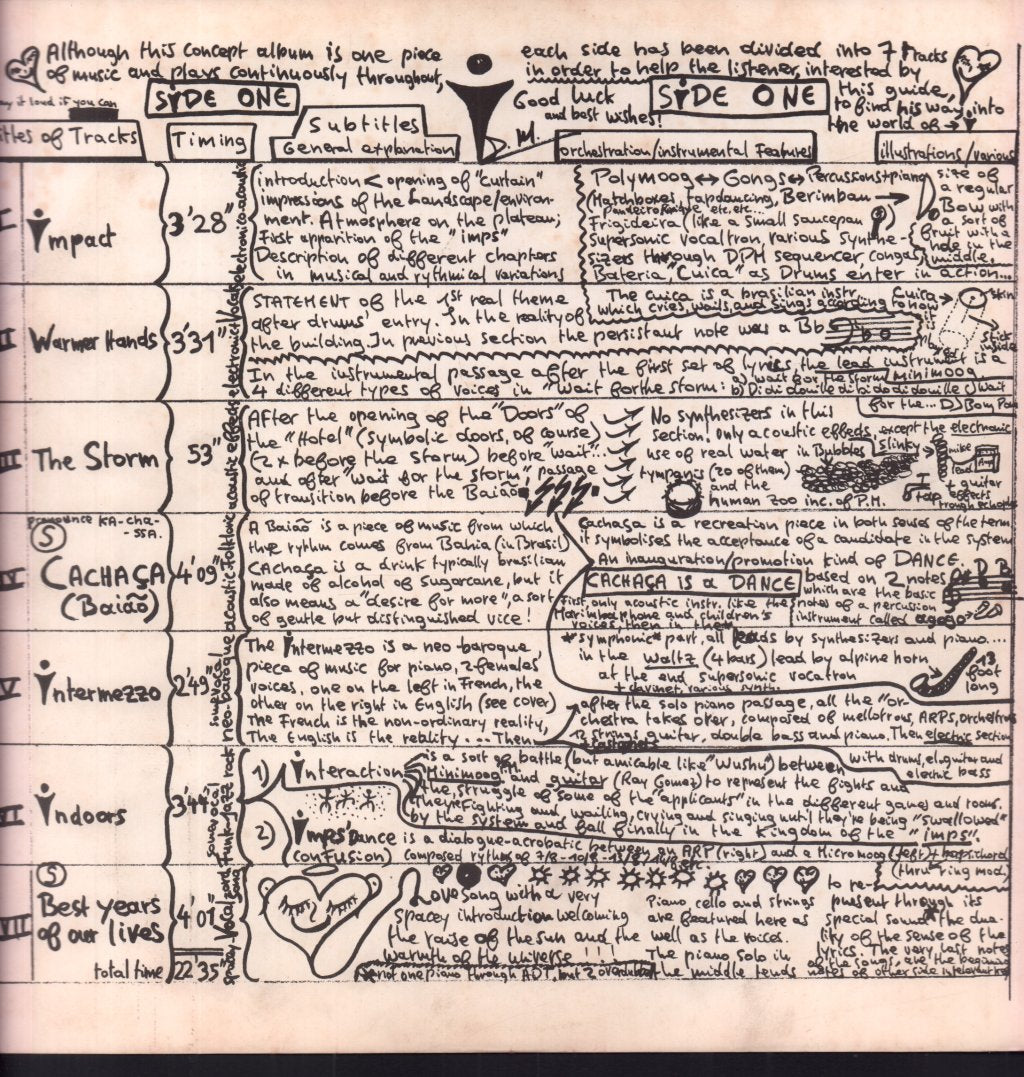 Although this concept album is one piece
of music and plays continuously throughout,
each side has been divided into 7 tracks
in order to help the listener, interested by
this guide,
to find his way into
the world of →
if you can
SIDE ONE
Good luck
and best wishes!
P.M.
SIDE ONE
Titles of Tracks
Timing
Subtitles
General explanation
orchestration/instrumental Features
illustrations/various
I
Impact
3'28"
introduction < opening of "curtain"
impressions of the landscape/environ-
ment. Atmosphere on the plateau;
First apparition of the "imps"
Description of different chapters
in musical and rythmical variations
Polymoog ↔ Gongs ↔ Percussons+piano
(Matchboxes, tapdancing, Berimbau →
Frigideira (like a small saucepan
Supersonic vocaltron, various synthe-
sizers through DPM sequencer congas
Bateria, "Cuica" as Drums enter in action...
size of
a regular
Bow with
a sort of
fruit with a
hole in the
middle.
II
Warmer Hands
3'31"
STATEMENT of the 1st real theme
after drums' entry. In the reality of
the building. In previous section the persistant note was a Bb
The cuica is a brasilian instr.
which cries, wails and sings according to how
Cuica →
skin
stick
inside
In the instrumental passage after the first set of lyrics, the lead instrument is a
minimoog
4 different types of voices in "Wait for the storm: a) wait for the storm
for the... D) Bom Pom
III
The Storm
53"
acoustic effects
After the opening of the "Doors" of
the "Hotel" (symbolic doors, of course)
(2x before the Storm) before "wait"...
and after "wait for the storm" passage
of transition before the Baião
No synthesizers in this
section. only acoustic effects, except the electronic
use of real water in Bubbles
"slinky"
tympanis (20 of them)
and the
human zoo inc. of P.M.
mike
lead
+ guitar
effects
IV
pronounce KA-cha-
-SSA.
S
CACHAÇA
(Baião)
4'09"
acoustic-folkloric
A Baião is a piece of music from which
the rythm comes from Bahia (in Brasil)
CACHAÇA is a drink typically brasilian
made of alcohol of sugarcane, but it
also means a "desire for more", a sort
of gentle but distinguished vice!
Cachaça is a recreation piece in both senses of the term
it symbolises the acceptance of a candidate in the system
An inauguration/promotion kind of DANCE.
CACHAÇA is a DANCE
based on 2 notes
which are the basic
notes of a percussion
instrument called agogo
D B
First, only acoustic instr. like the
Marimbaphone and children's
voices, then in the
"symphonic" part, all leads by synthesizers and piano....
in the waltz (4 bars) lead by alpine horn
at the end supersonic vocatron
+ clavinet, various synth.
13
foot
long
V
Intermezzo
2'49"
neo-baroque
The Intermezzo is a neo baroque
piece of music for piano, 2 females'
voices, one on the left in French, the
other on the right in English (see cover)
The French is the non-ordinary reality,
The English is the reality... Then
after the solo piano passage, all the "or-
chestra takes over, composed of mellotrons, ARPS, orchestrons
12 strings guitar, double bass and piano. Then electric section
with drums, el.guitar and
electric bass
VI
Indoors
3'44"
1) Interaction
is a sort of battle (but amicable like "Wushu") between
Minimoog and guitar (Ray Gomez) to represent the fights and
the struggle of some of the "applicants" in the different games and rooms.
They're Fighting and wailing, crying and singing until they're being "swallowed"
by the system and fall finally in the Kingdom of the "imps".
2) Imps' Dance is a dialogue-acrobatic between an ARP (right) and a Micromoog (left) + harpsichord
(confusion)
(thru' ring mod.)
VII
S
Best years
of our lives
4'01"
Love Song with a very
spacey introduction welcoming
the raise of the sun and the
Warmth of the Universe !!!
Piano, cello and strings
are featured here as
well as the voices.
The piano solo in
the middle tends
to re-
present through its
special sound the dua-
lity of the sense of the
lyrics. The very last notes
of the songs, are the beginning
total time
22'35"
not one piano through ADT, but 2 overdubs